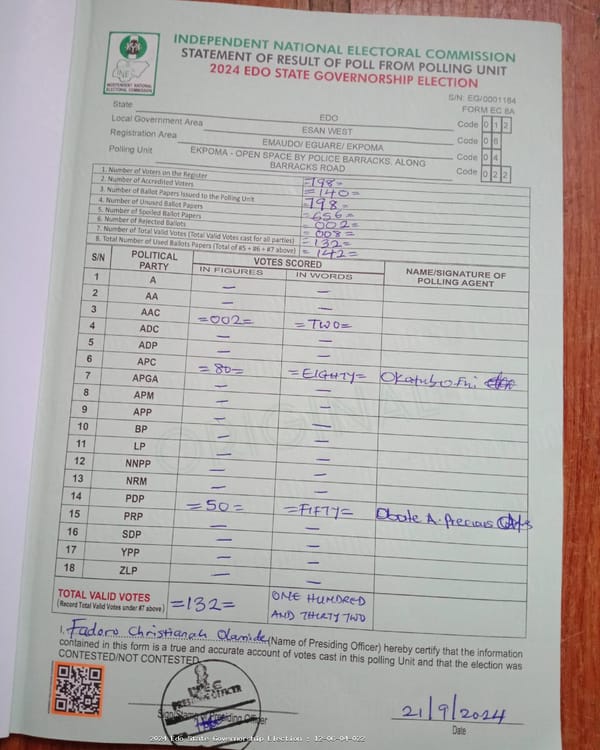 INEC
INDEPENDENT NATIONAL
ELECTORAL COMMISSION
INDEPENDENT NATIONAL ELECTORAL COMMISSION
STATEMENT OF RESULT OF POLL FROM POLLING UNIT
2024 EDO STATE GOVERNORSHIP ELECTION
S/N: EG/0001184
FORM EC 8A
State EDO Code 0 1 2
Local Government Area ESAN WEST Code 0 6
Registration Area EMAUDO/ EGUARE/ EKPOMA Code 0 4
Polling Unit EKPOMA - OPEN SPACE BY POLICE BARRACKS, ALONG BARRACKS ROAD Code 0 2 2
1. Number of Voters on the Register =798=
2. Number of Accredited Voters =140=
3. Number of Ballot Papers Issued to the Polling Unit =798=
4. Number of Unused Ballot Papers =656=
5. Number of Spoiled Ballot Papers =002=
6. Number of Rejected Ballots =008=
7. Number of Total Valid Votes (Total Valid Votes cast for all parties) =132=
8. Total Number of Used Ballots Papers (Total of #5 + #6 + #7 above) =142=
S/N POLITICAL PARTY VOTES SCORED NAME/SIGNATURE OF POLLING AGENT
IN FIGURES IN WORDS
1 A — —
2 AA — —
3 AAC =002= =TWO=
4 ADC — —
5 ADP — —
6 APC =80= =EIGHTY=
7 APGA — —
8 APM — —
9 APP — —
10 BP — —
11 LP — —
12 NNPP — —
13 NRM — —
14 PDP =50= =FIFTY= Precious
15 PRP — —
16 SDP — —
17 YPP — —
18 ZLP — —
TOTAL VALID VOTES =132= ONE HUNDRED
(Record Total Valid Votes under #7 above) AND THIRTY TWO
I, Fadoro Christianah Olamide (Name of Presiding Officer) hereby certify that the information
contained in this form is a true and accurate account of votes cast in this polling Unit and that the election was
CONTESTED/NOT CONTESTED
INEC
PRESIDING OFFICER
Sign/Stamp of Presiding Officer
21/9/2024
Date
2024 Edo State Governorship Election : 12-06-04-022